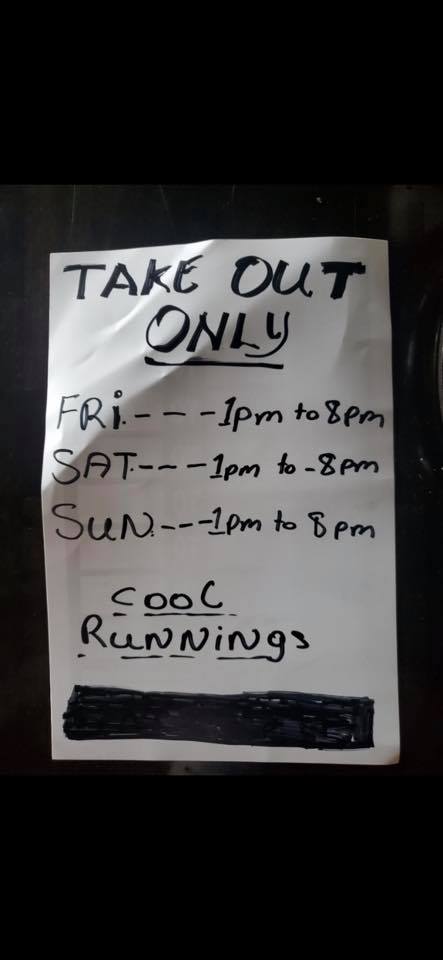 TAKE OUT
ONLY
FRi.----1pm to 8pm
SAT.---1pm to -8pm
SUN.---1pm to 8pm
COOL
RUNNiNgs